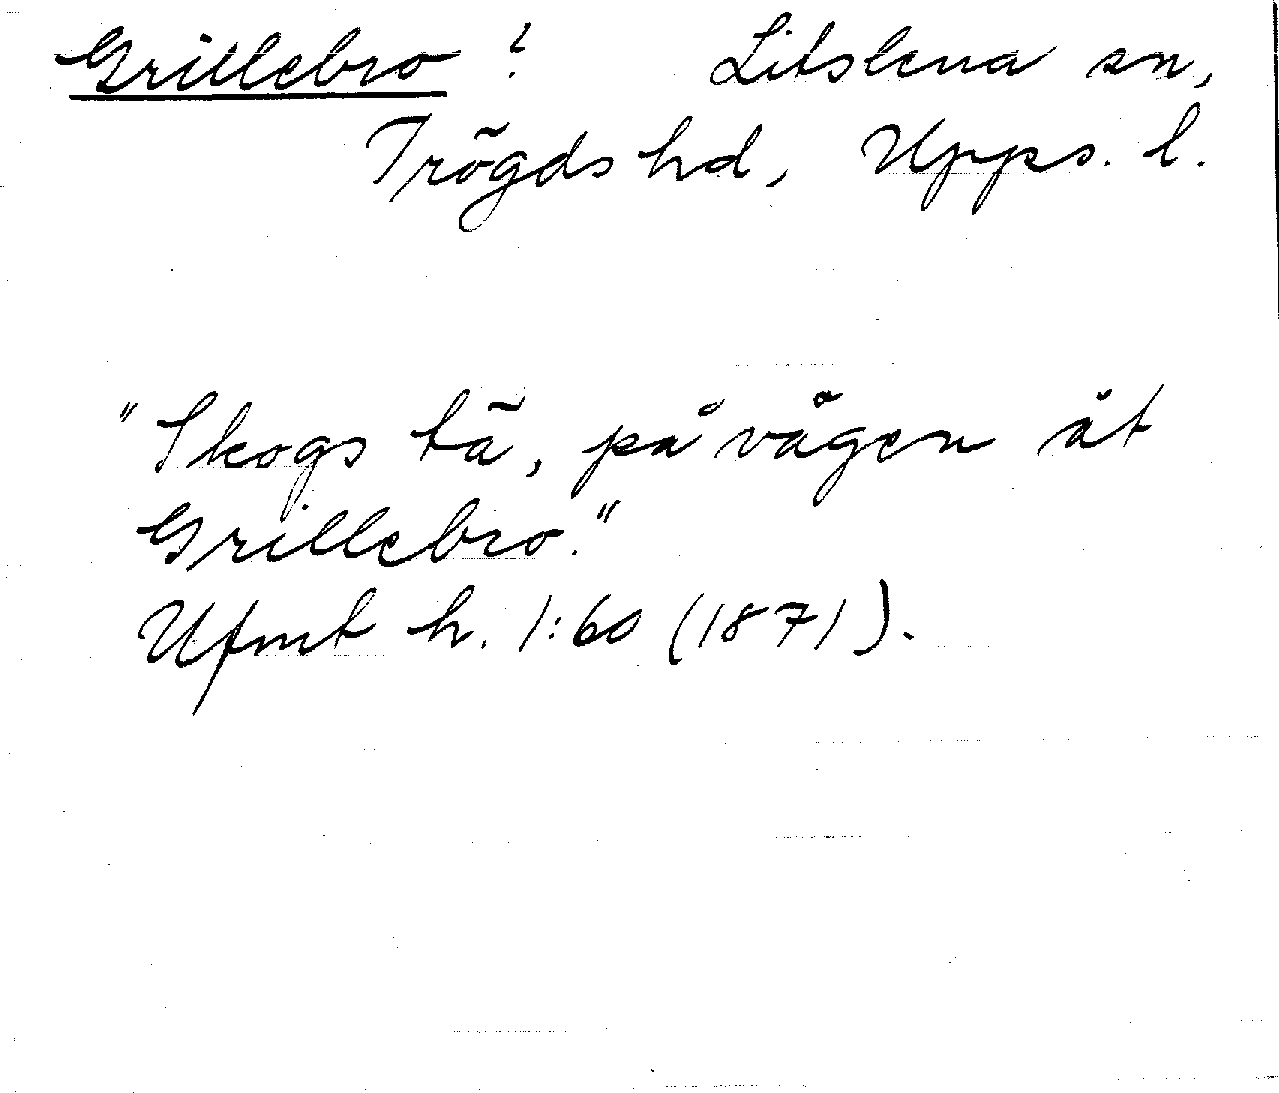 Grillebro ? Litslena sn,
Trögds hd, Upps. l.
"Skogs tä, på vågen åt
Grillebro."
Ufmt h. 1:60 (1871).